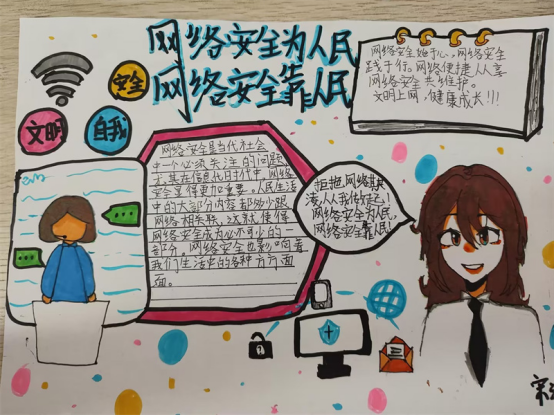 网络安全为人民
网络安全靠人民
安全
文明
自我
网络安全始于心,网络安全
践于行。网络便捷人人享
网络安全共维护。
文明上网,健康成长!!!
网络安全是当代社会
中一个必须关注的问题
尤其在信息化时代中,网络
安全显得更加重要。人民生活
中的大部分内容都多少跟
网络相关联,这就使得
网络安全成为必不可少的一
部分。网络安全也影响着
我们生活中的各种方方面
面。
拒绝网络欺
凌,人人我做起!
网络安全为人民,
网络安全靠人民!